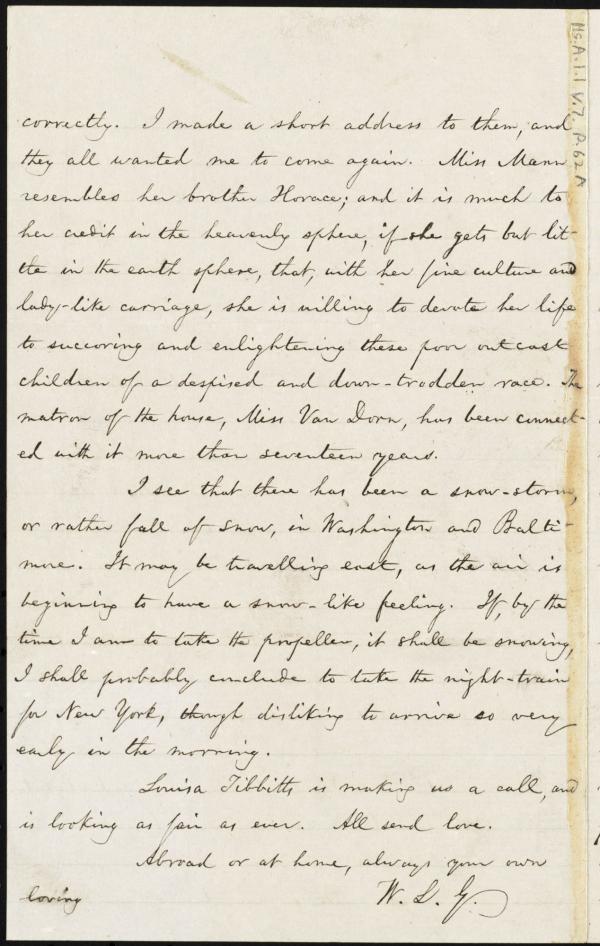 Ms.A.1.1 v.7, p.62A
correctly. I made a short address to them, and
they all wanted me to come again. Miss Mann
resembles her brother Horace; and it is much to
her credit in the heavenly sphere, if she gets but lit-
tle in the earth sphere, that, with her fine culture and
lady-like carriage, she is willing to devote her life
to succoring and enlightening these poor outcast
children of a despised and down-trodden race. The
matron of the house, Miss Van Dorn, has been connect-
ed with it more than seventeen years.
I see that there has been a snow-storm,
or rather fall of snow, in Washington and Balti-
more. It may be travelling east, as the air is
beginning to have a snow-like feeling. If, by the
time I am to take the propeller, it shall be snowing,
I shall probably conclude to take the night-train
for New York, though disliking to arrive so very
early in the morning.
Louisa Tibbitts is making us a call, and
is looking as fair as ever. All send love.
Abroad or at home, always your own
loving W. L. G.